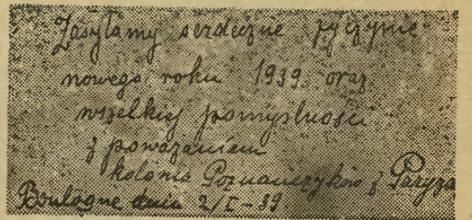 Zasyłamy serdeczne życzynie
nowego roku 1939 oraz
wszelkiej pomyslności
z poważaniem
kolonia Poznańczyków z Paryża
Boulogne dnia 2/I-39